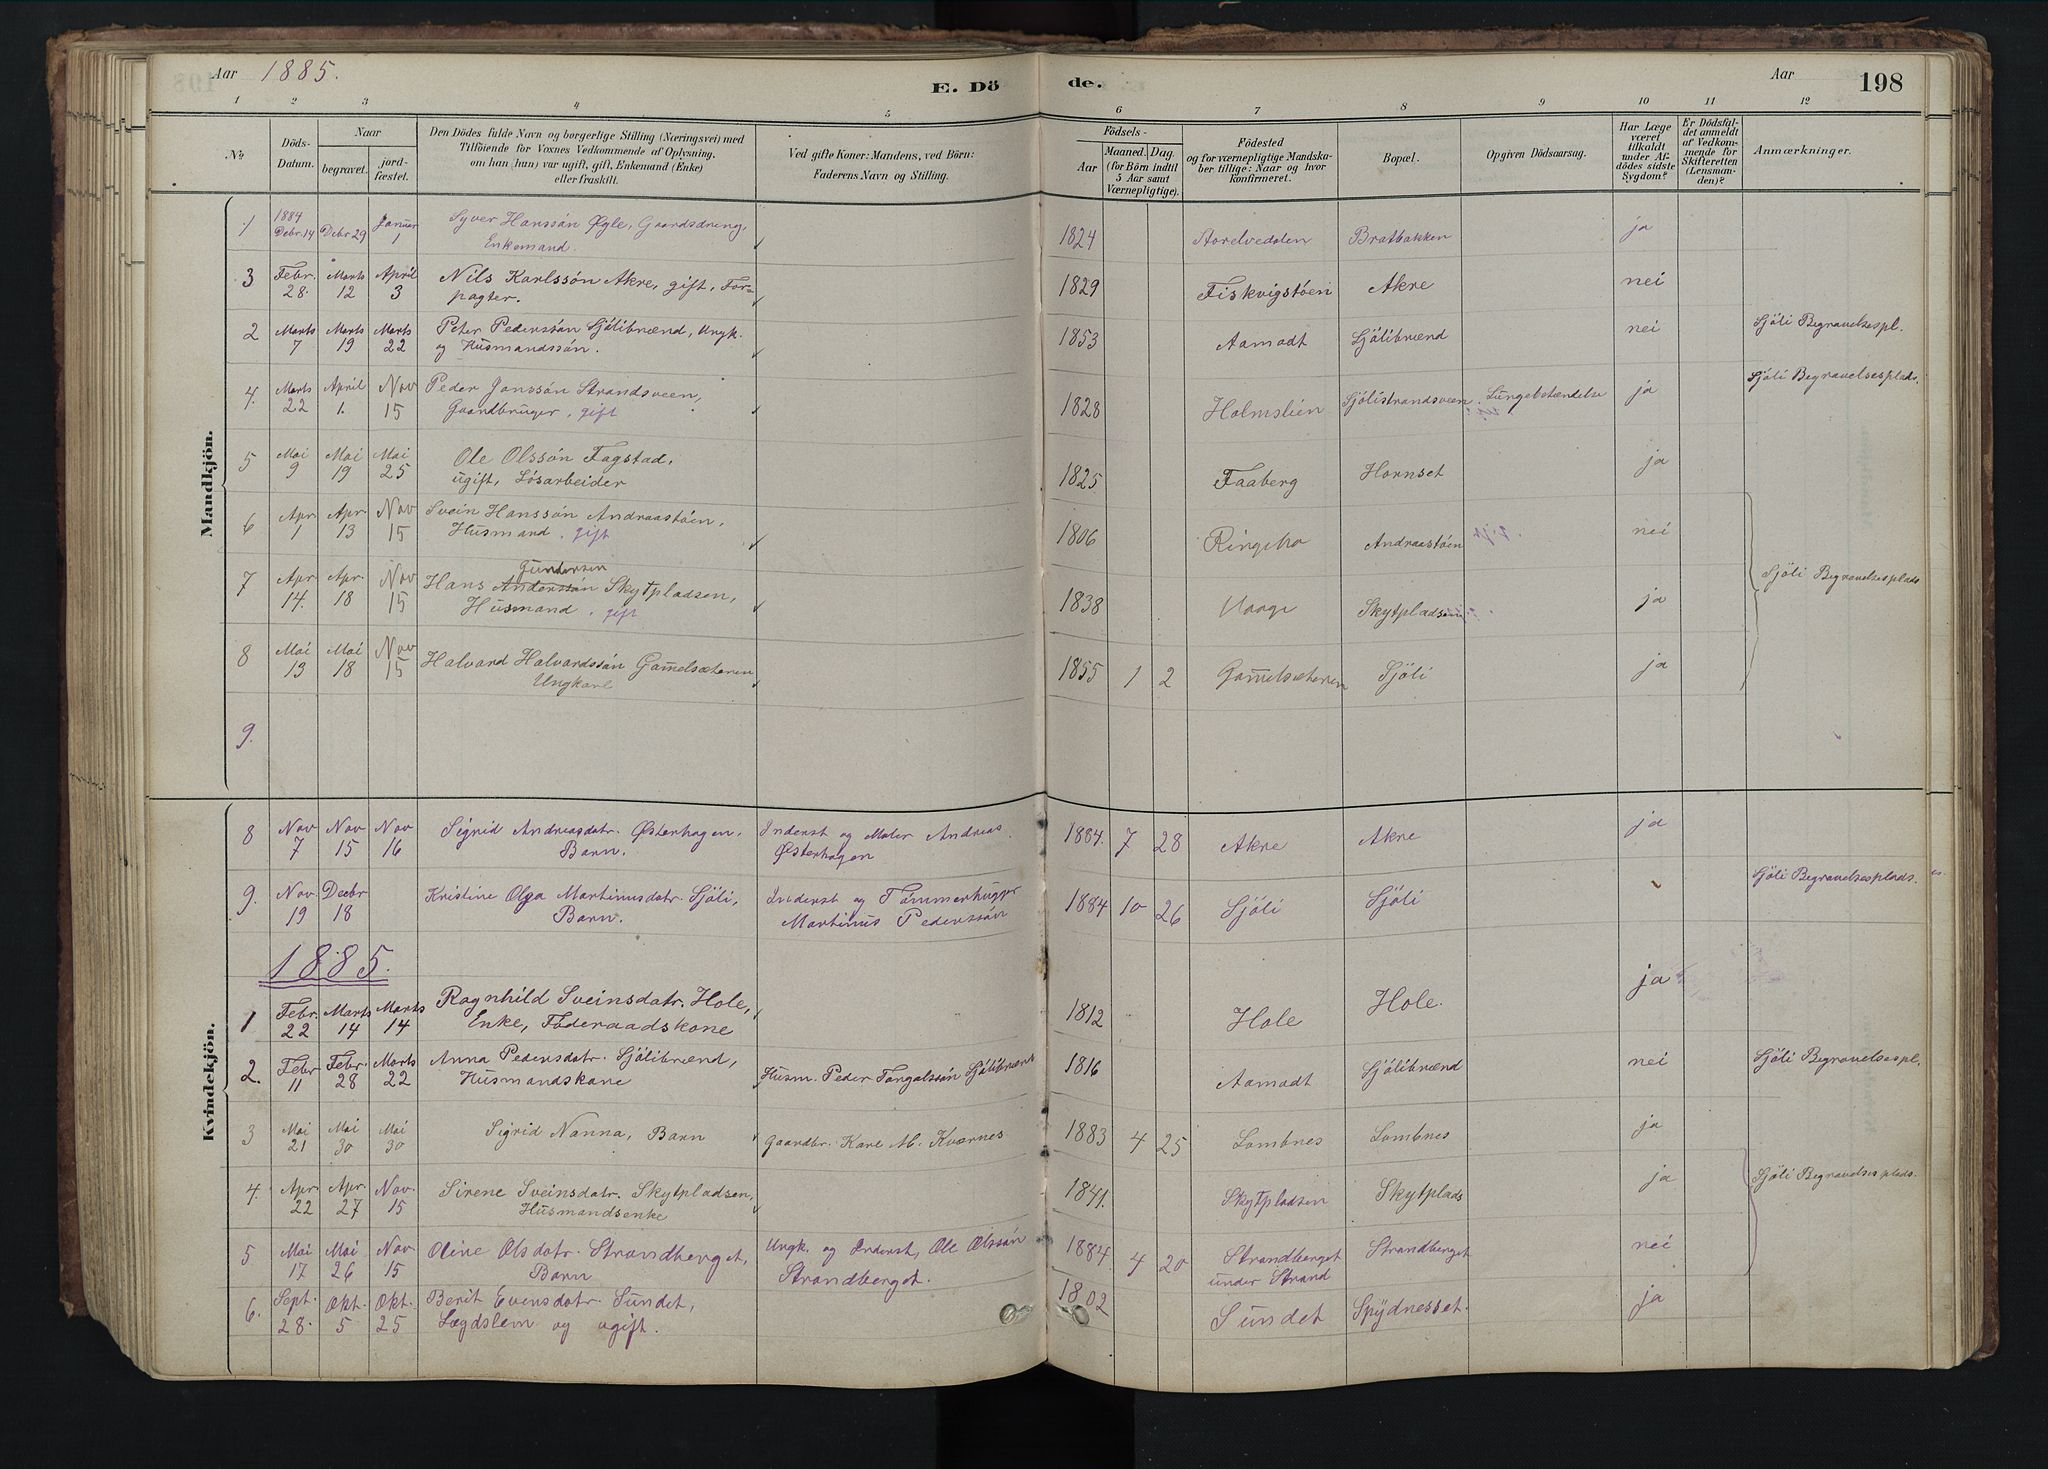 Aar 1885.
E. Döde.
Aar
198
1 2 3 4 5 6 7 8 9 10 11 12
No
Döds-Datum.
Naar
begravet.
jord-fæstet.
Den Dödes fulde Navn og borgerlige Stilling (Næringsvei) med
Tilföiende for Voxnes Vedkommende af Oplysning,
om han (hun) var ugift, gift, Enkemand (Enke)
eller fraskilt.
Ved gifte Koner: Mandens, ved Börn:
Faderens Navn og Stilling.
Födsels-
Aar
Maaned. Dag.
(for Börn indtil
5 Aar samt
Værnepligtige).
Födested
og for værnepligtige Mandska-
ber tillige: Naar og hvor
konfirmeret.
Bopæl.
Opgiven Dödsaarsag.
Har Læge
været
tilkaldt
under Af-
dödes sidste
Sygdom?
Er Dödsfal-
det anmeldt
af Vedkom-
mende for
Skifteretten
(Lensman-
den)?
Anmærkninger.
Mandkjön.
1 1884 Debr. 14 Debr 29 Januar 1 Syver Hanssön Øgle, Gaardsdreng, Enkemand. 1824 Bratbakken ja
3 Febr. 28. Marts 12 April 3 Nils Karlssön Akre, gift, Forpagter. 1829 Fiskvigstöen Akre nei
2 Marts 7 Marts 19 Marts 22 Peter Pederssön Sjölibrænd, Ungk. og Husmandssön. 1853 Aamodt Sjölibrænd nei Sjöli Begravelsespl.
4. Marts 22 April 1. Nov 15 Peder Janssön Strandsveen, Gaardbruger, gift 1828 Holmslien Sjölistrandsveen Lungebetændelse ja Sjöli Begravelsesplads.
5 Mai 9 Mai 19 Mai 25 Ole Olssön Fagstad, ugift, Løsarbeider 1825 Faaberg Hornset ja
6 Apr. 1 Apr. 13 Nov 15 Svein Hanssön Andraastöen, Husmand, gift 1806 Ringebo Andraastöen nei
7 Apr 14. Apr. 18 Nov 15 Hans Anderssön Gundersen Skytpladsen, Husmand, gift 1838 Vaage Skytpladsen ja Sjöli Begravelsesplads
8 Mai 13 Mai 18 Nov 15 Halvard Halvardssön Gamelsæteren Ungkarl 1855 1 2 Gamelsæteren Sjöli ja
9.
Kvindekjön.
8 Nov 7 Nov 15 Nov 16 Sigrid Andreasdatr. Østerhagen, Barn. Inderst og Maler Andreas Østerhagen 1884. 7 28 Akre Akre ja
9. Nov. 19 Decbr 18 Kristine Olga Martinusdatr. Sjöli, Barn. Inderst og Tømmerhugger Martinus Pederssön 1884 10 26 Sjöli Sjöli Sjöli Begravelsesplads.
1885.
1 Febr. 22 Marts 14 Marts 14 Ragnhild Sveinsdatr. Hole, Enke, Föderaadskone 1812 Hole Hole. ja
2. Febr 11 Febr. 28 Marts 22 Anna Pedersdatr. Sjölibrænd, Husmandskone Husm. Peder Sjölibrænd 1816 Aamodt Sjölibrænd nei Sjöli Begravelsespl.
3 Mai 21 Mai 30 Mai 30 Sigrid Nanna, Barn Gaardbr. Karl M. Kvernes 1883 4 25 Lombnes Lombnes ja
4. Apr 22 Apr. 27 Nov. 15 Sirene Sveinsdatr. Skytpladsen, Husmandsenke 1841. Skytpladsen Skytplads ja Sjöli Begravelsesplads.
5 Mai 17 Mai 26 Nov 15 Oline Olsdatr. Strandberget, Barn Ungk. og Inderst, Ole Olssön Strandberget. 1884. 4 20 Strandberget under Strand Strandberget nei
6. Sept. 28. Okt. 5 Okt. 25 Berit Evensdatr. Sundet, Lægdslem og ugift. 1802 Sundet Spydnesset. ja